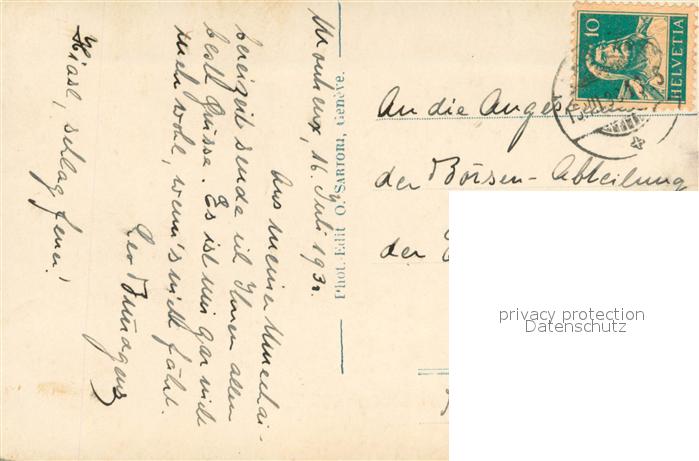 Montreux, 16. Juli 1932.
Aus meiner
sende ich Ihnen allen
beste Grüsse. Es ist mir gar nicht
mehr wohl, wenn's nicht fährt.
Hiasl, schlag feuer!
Phot. Edit. O. Sartori, Genève.
HELVETIA
10
An die
der Börsen-Abteilung
der
privacy protection
Datenschutz